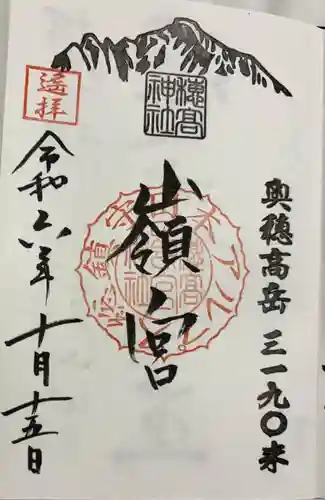 奥穂高岳 三一九〇米
穂高
神社
嶺宮
遙拝
令和六年十月十五日